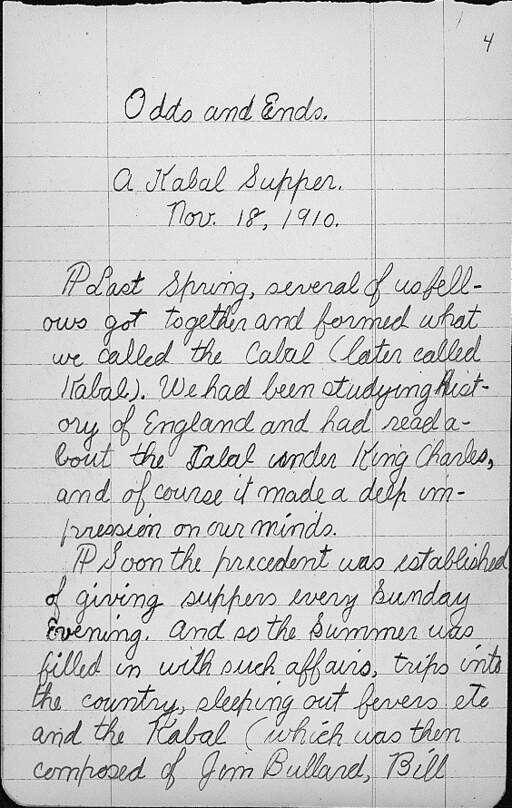 4
Odds and Ends.
A Kabal Supper.
Nov. 18, 1910.
¶ Last Spring, several of us fell-
ows got together and formed what
we called the Cabal (later called
Kabal). We had been studying hist-
ory of England and had read a-
bout the Cabal under King Charles,
and of course it made a deep im-
pression on our minds.
¶ Soon the precedent was established
of giving suppers every Sunday
Evening. And so the Summer was
filled in with such affairs, trips into
the country, sleeping out fevers etc
and the Kabal (which was then
composed of Jim Bullard, Bill